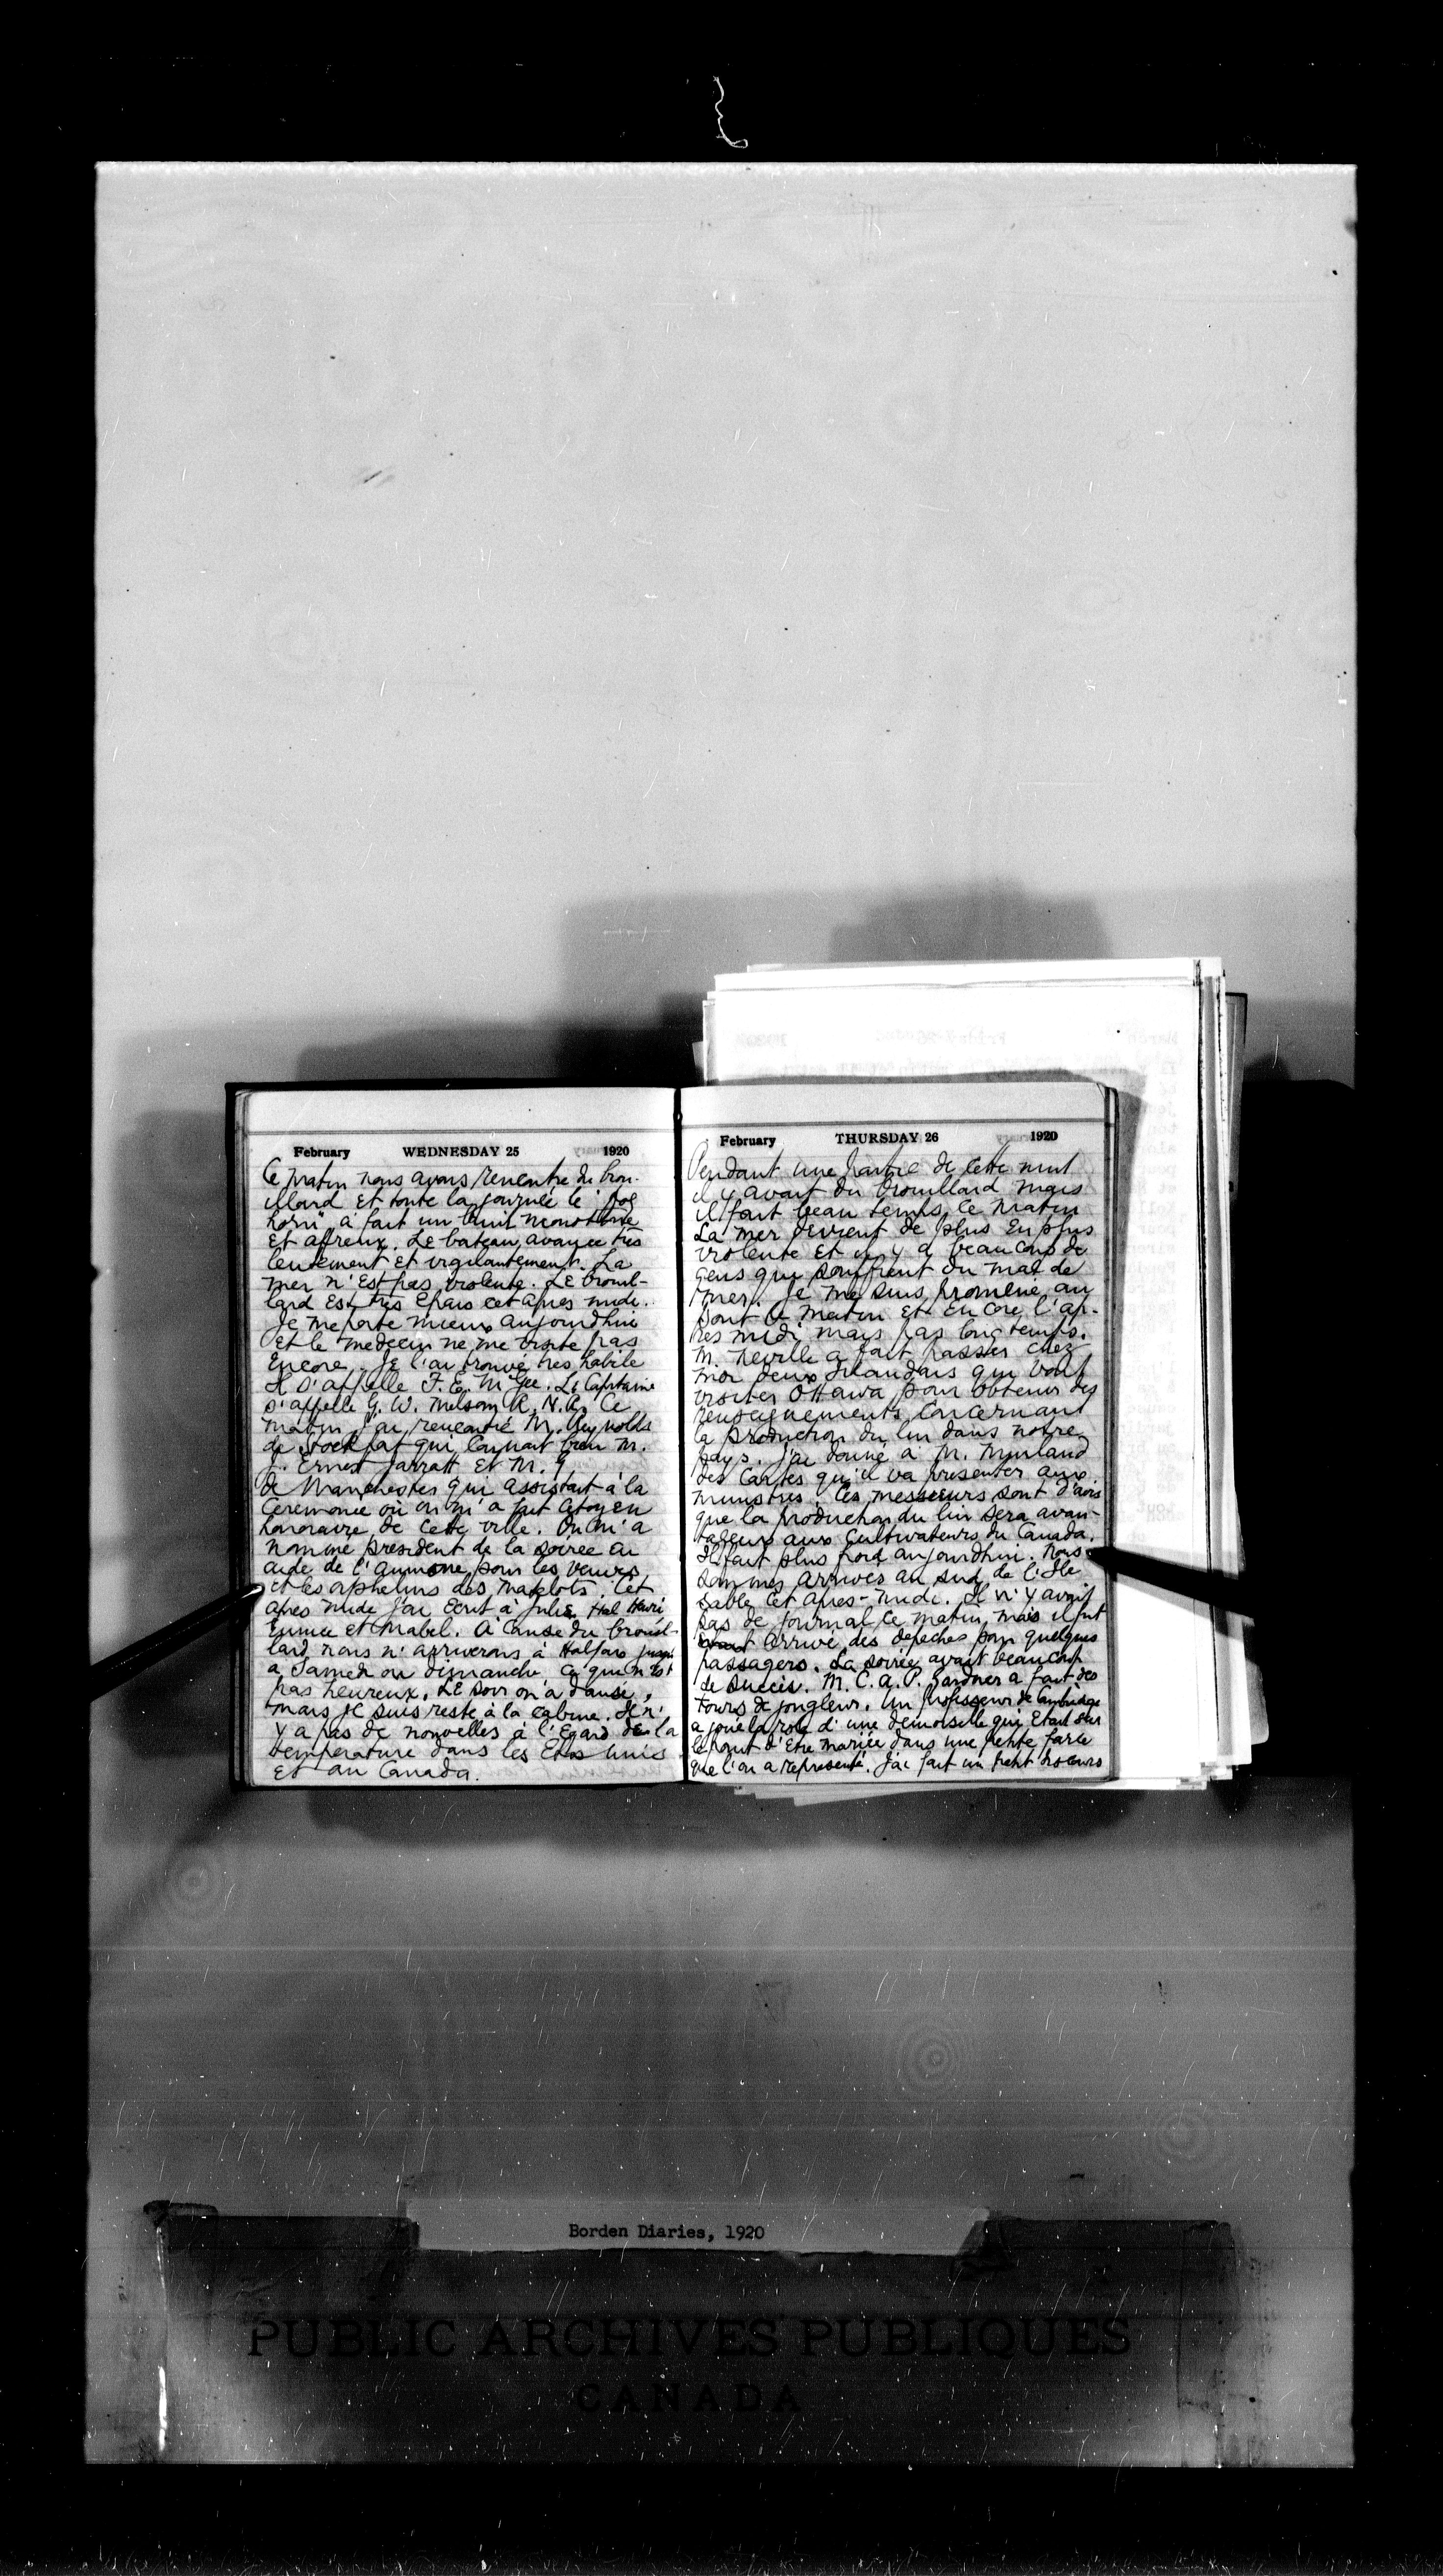 February WEDNESDAY 25 1920
Ce matin nous avons rencontre du brou-
illard et toute la journée le "fog
horn" a fait un bruit monotone
et affreux. Le bateau avance très
lentement et vigilantement. La
mer n'est pas violente. Le brouil-
lard est très épais cet apres midi.
Je me porte mieux aujourdhui
et le medecin ne me visite pas
encore. Je l'ai trouvé tres habile
Il s'appelle F. E. McGee. Le Capitaine
s'appelle G. W. Melsom R. N. R. Ce
matin j'ai rencontré M. Reynolds
de Stockport qui connait bien M.
J. Ernest Jarratt et M. G
de Manchester qui assistait à la
Ceremonie où on m'a fait citoyen
honoraire de cette ville. On m'a
nommé president de la soirée en
aide de l'aumone pour les veuves
et les orphelins des matelots. Cet
apres midi j'ai écrit à Julie, Hal Henri
Eunice et Mabel. A cause du brouil-
lard nous n'arriverons à Halifax jusqu'
a Samedi ou dimanche ce qui n'est
pas heureux. Le soir on a dansé,
mais je suis resté à la cabine. Il n'
y a pas de nouvelles à l'egard de la
température dans les Etas Unis
et au Canada.
February THURSDAY 26 1920
Pendant une partie de cette nuit
il y avait du brouillard mais
il fait beau temps ce matin
La mer devient de plus en plus
violente et il y a beaucoup de
gens qui souffrent du mal de
mer. Je me suis promené au
pont ce matin et encore l'ap-
res midi mais pas longtemps.
M. Neville a fait passer chez
moi deux Irlandais qui vont
visiter Ottawa pour obtenir des
renseignements concernant
la production du lin dans notre
pays. J'ai donné à M. Murland
des cartes qu'il va presenter aux
ministres. Ces messieurs sont d'avis
que la production du lin sera avan-
tageux aux cultivateurs du Canada.
Il fait plus froid aujourdhui. Nous
sommes arrivés au sud de l'Ile
Sable cet apres-midi. Il n'y avait
pas de journal ce matin mais il fut
arrivé des depeches pour quelques
passagers. La soirée avait beaucoup
de succès. M. C. A. P. Gardner a fait des
tours de jongleur. Un professeur de Cambridge
a joué la role d'une demoiselle qui etait sur
le point d'être mariée dans une petite farce
que l'on a representé. J'ai fait un petit discours
Borden Diaries, 1920
PUBLIC ARCHIVES PUBLIQUES
CANADA